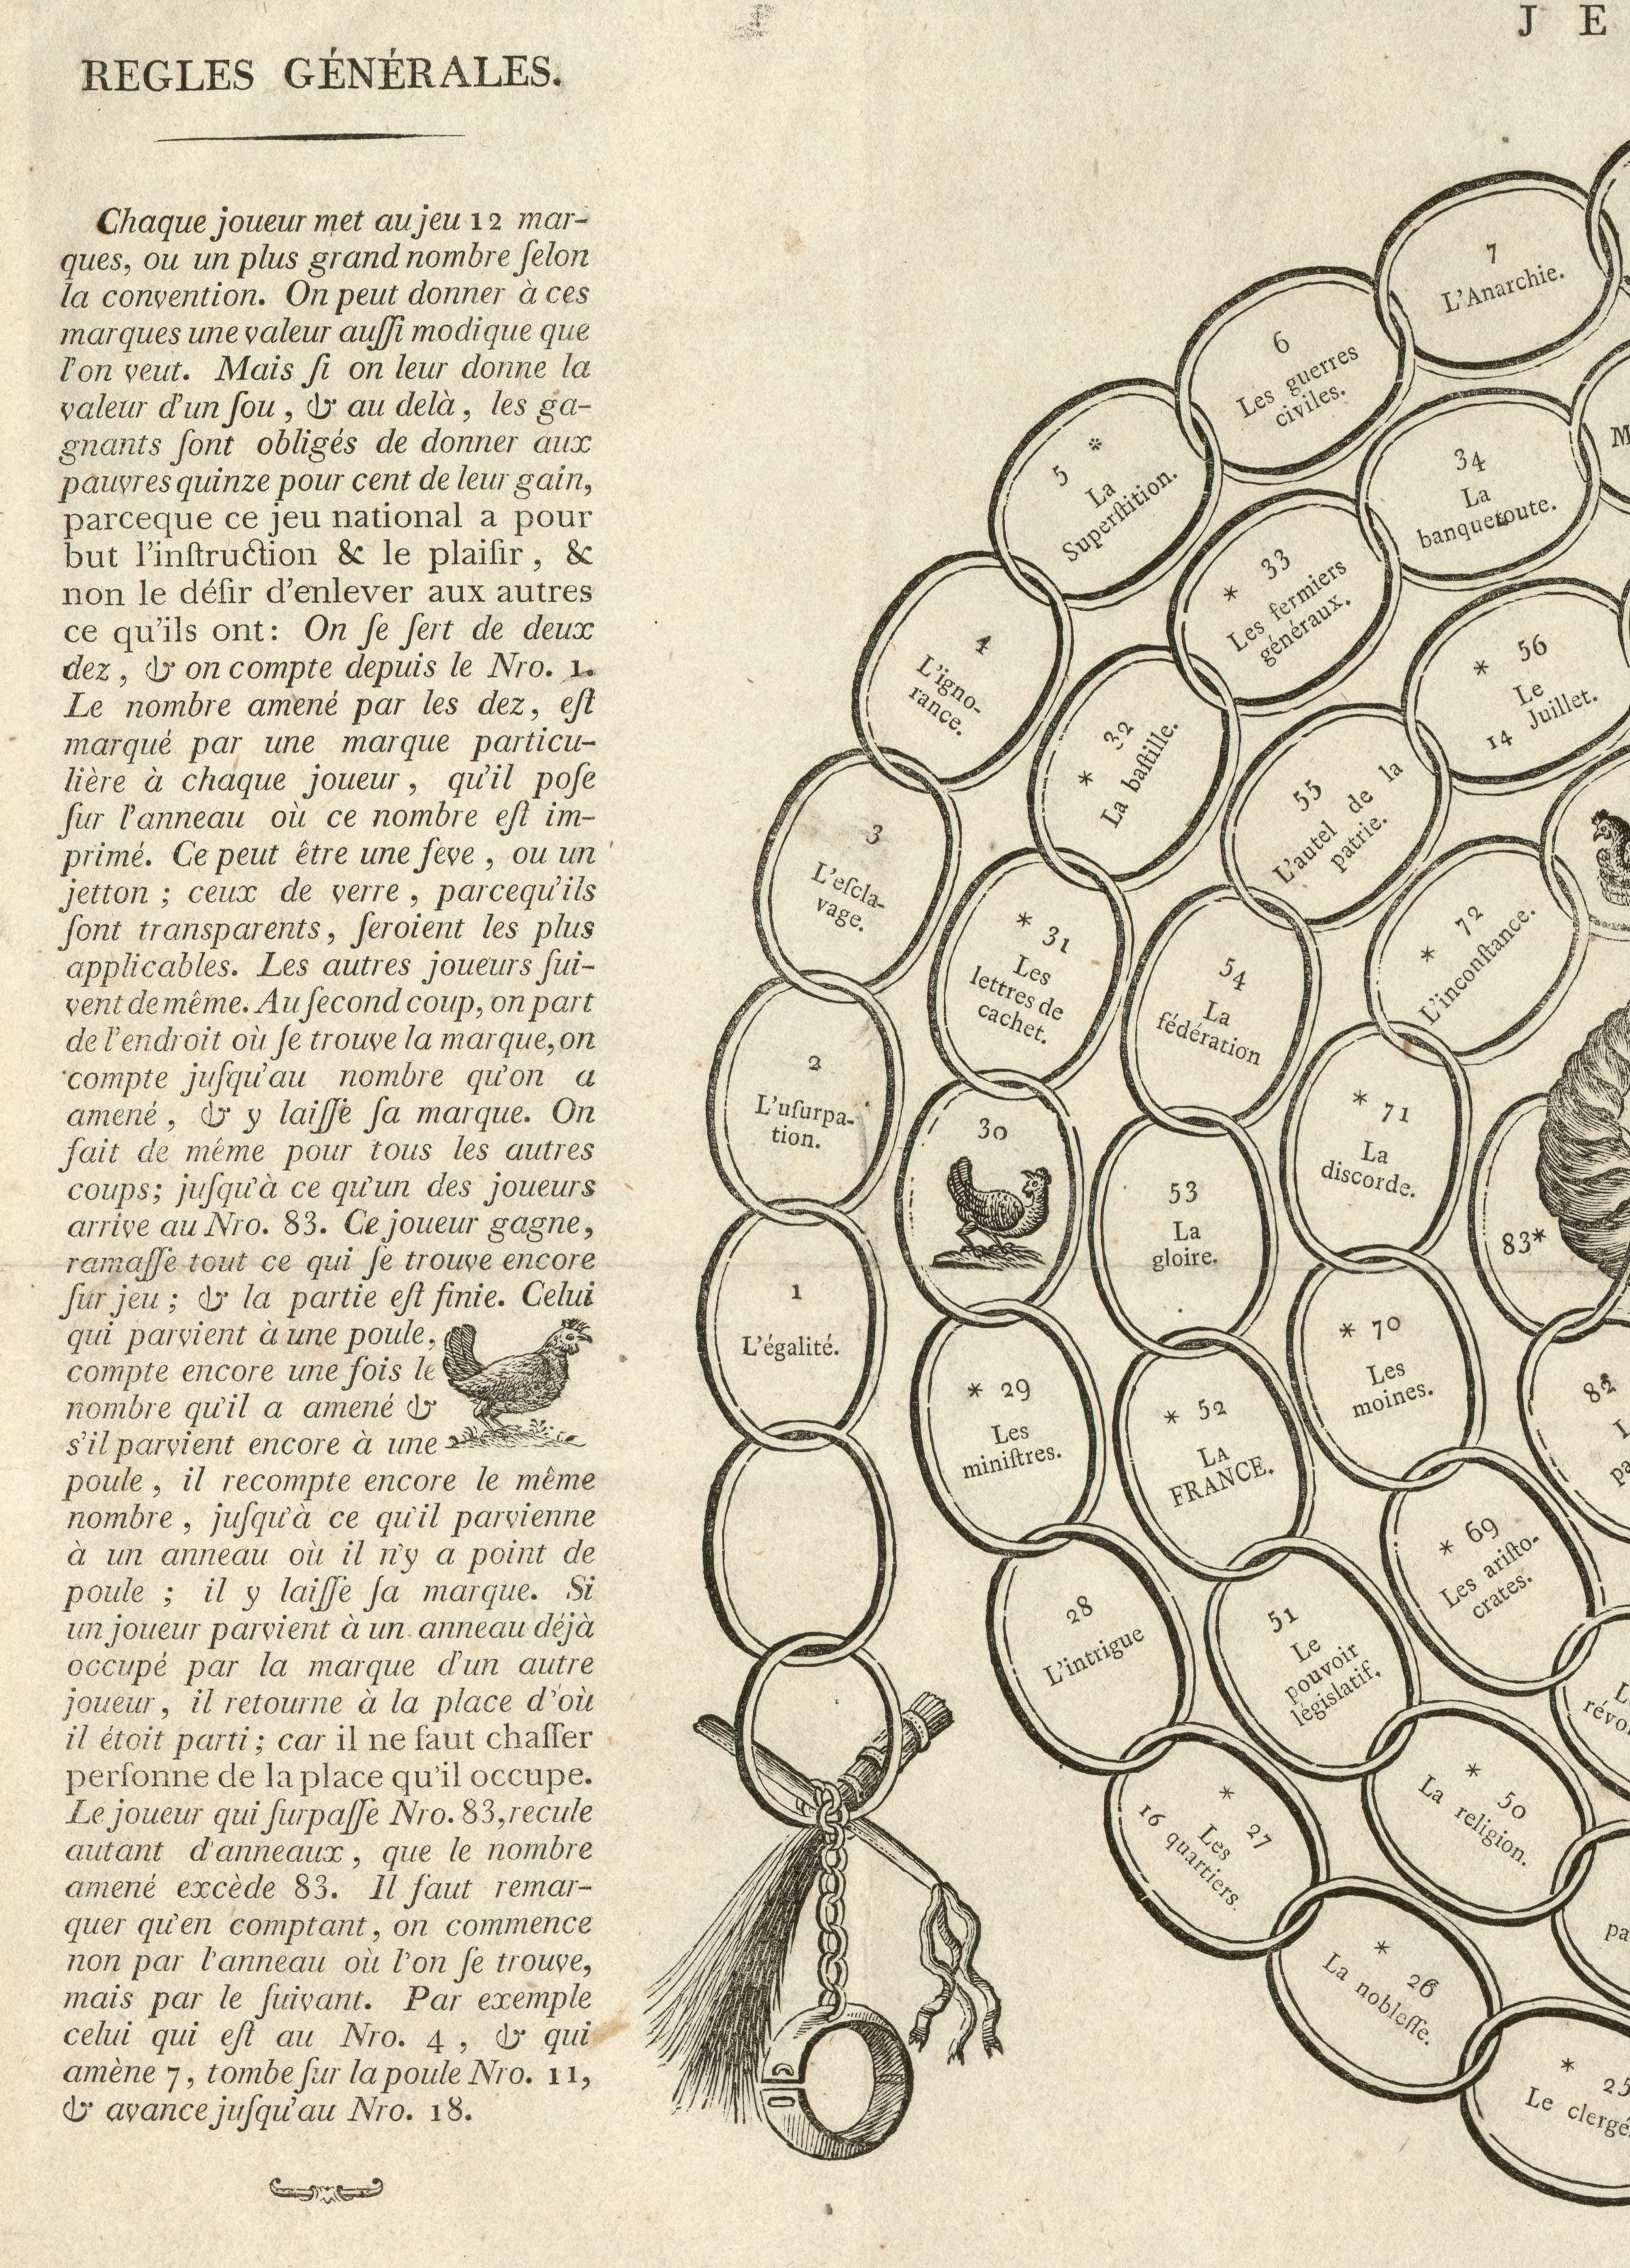 REGLES GÉNÉRALES.
Chaque joueur met au jeu 12 mar-
ques, ou un plus grand nombre ſelon
la convention. On peut donner à ces
marques une valeur auſſi modique que
l'on veut. Mais ſi on leur donne la
valeur d'un ſou, & au delà, les ga-
gnants ſont obligés de donner aux
pauvres quinze pour cent de leur gain,
parceque ce jeu national a pour
but l'inſtruction & le plaiſir, &
non le déſir d'enlever aux autres
ce qu'ils ont: On ſe ſert de deux
dez, & on compte depuis le Nro. 1.
Le nombre amené par les dez, eſt
marqué par une marque particu-
lière à chaque joueur, qu'il poſe
ſur l'anneau où ce nombre eſt im-
primé. Ce peut être une feve, ou un
jetton; ceux de verre, parcequ'ils
ſont transparents, ſeroient les plus
applicables. Les autres joueurs ſui-
vent de même. Au ſecond coup, on part
de l'endroit où ſe trouve la marque, on
compte juſqu'au nombre qu'on a
amené, & y laiſſe ſa marque. On
fait de même pour tous les autres
coups; juſqu'à ce qu'un des joueurs
arrive au Nro. 83. Ce joueur gagne,
ramaſſe tout ce qui ſe trouve encore
ſur jeu; & la partie eſt finie. Celui
qui parvient à une poule,
compte encore une fois le
nombre qu'il a amené &
s'il parvient encore à une
poule, il recompte encore le même
nombre, juſqu'à ce qu'il parvienne
à un anneau où il n'y a point de
poule; il y laiſſe ſa marque. Si
un joueur parvient à un anneau déjà
occupé par la marque d'un autre
joueur, il retourne à la place d'où
il étoit parti; car il ne faut chaſſer
perſonne de la place qu'il occupe.
Le joueur qui ſurpaſſe Nro. 83, recule
autant d'anneaux, que le nombre
amené excède 83. Il faut remar-
quer qu'en comptant, on commence
non par l'anneau où l'on ſe trouve,
mais par le ſuivant. Par exemple
celui qui eſt au Nro. 4, & qui
amène 7, tombe ſur la poule Nro. 11,
& avance juſqu'au Nro. 18.
J E
1
L'égalité.
2
L'uſurpa-
tion.
3
L'eſcla-
vage.
4
L'igno-
rance.
5 *
La
Superſtition.
6
Les guerres
civiles.
7
L'Anarchie.
* 25
Le clergé
* 26
La nobleſſe.
* 27
Les
16 quartiers.
28
L'intrigue
* 29
Les
miniſtres.
30
* 31
Les
lettres de
cachet.
* 32
La baſtille.
* 33
Les fermiers
généraux.
34
La
banqueroute.
M
* 50
La religion.
51
Le
pouvoir
législatif.
* 52
LA
FRANCE.
53
La
gloire.
54
La
fédération
55
L'autel de la
patrie.
* 56
Le
14 Juillet.
révo
pa
* 69
Les ariſto-
crates.
* 70
Les
moines.
* 71
La
discorde.
* 72
L'inconſtance.
82
pa
83*